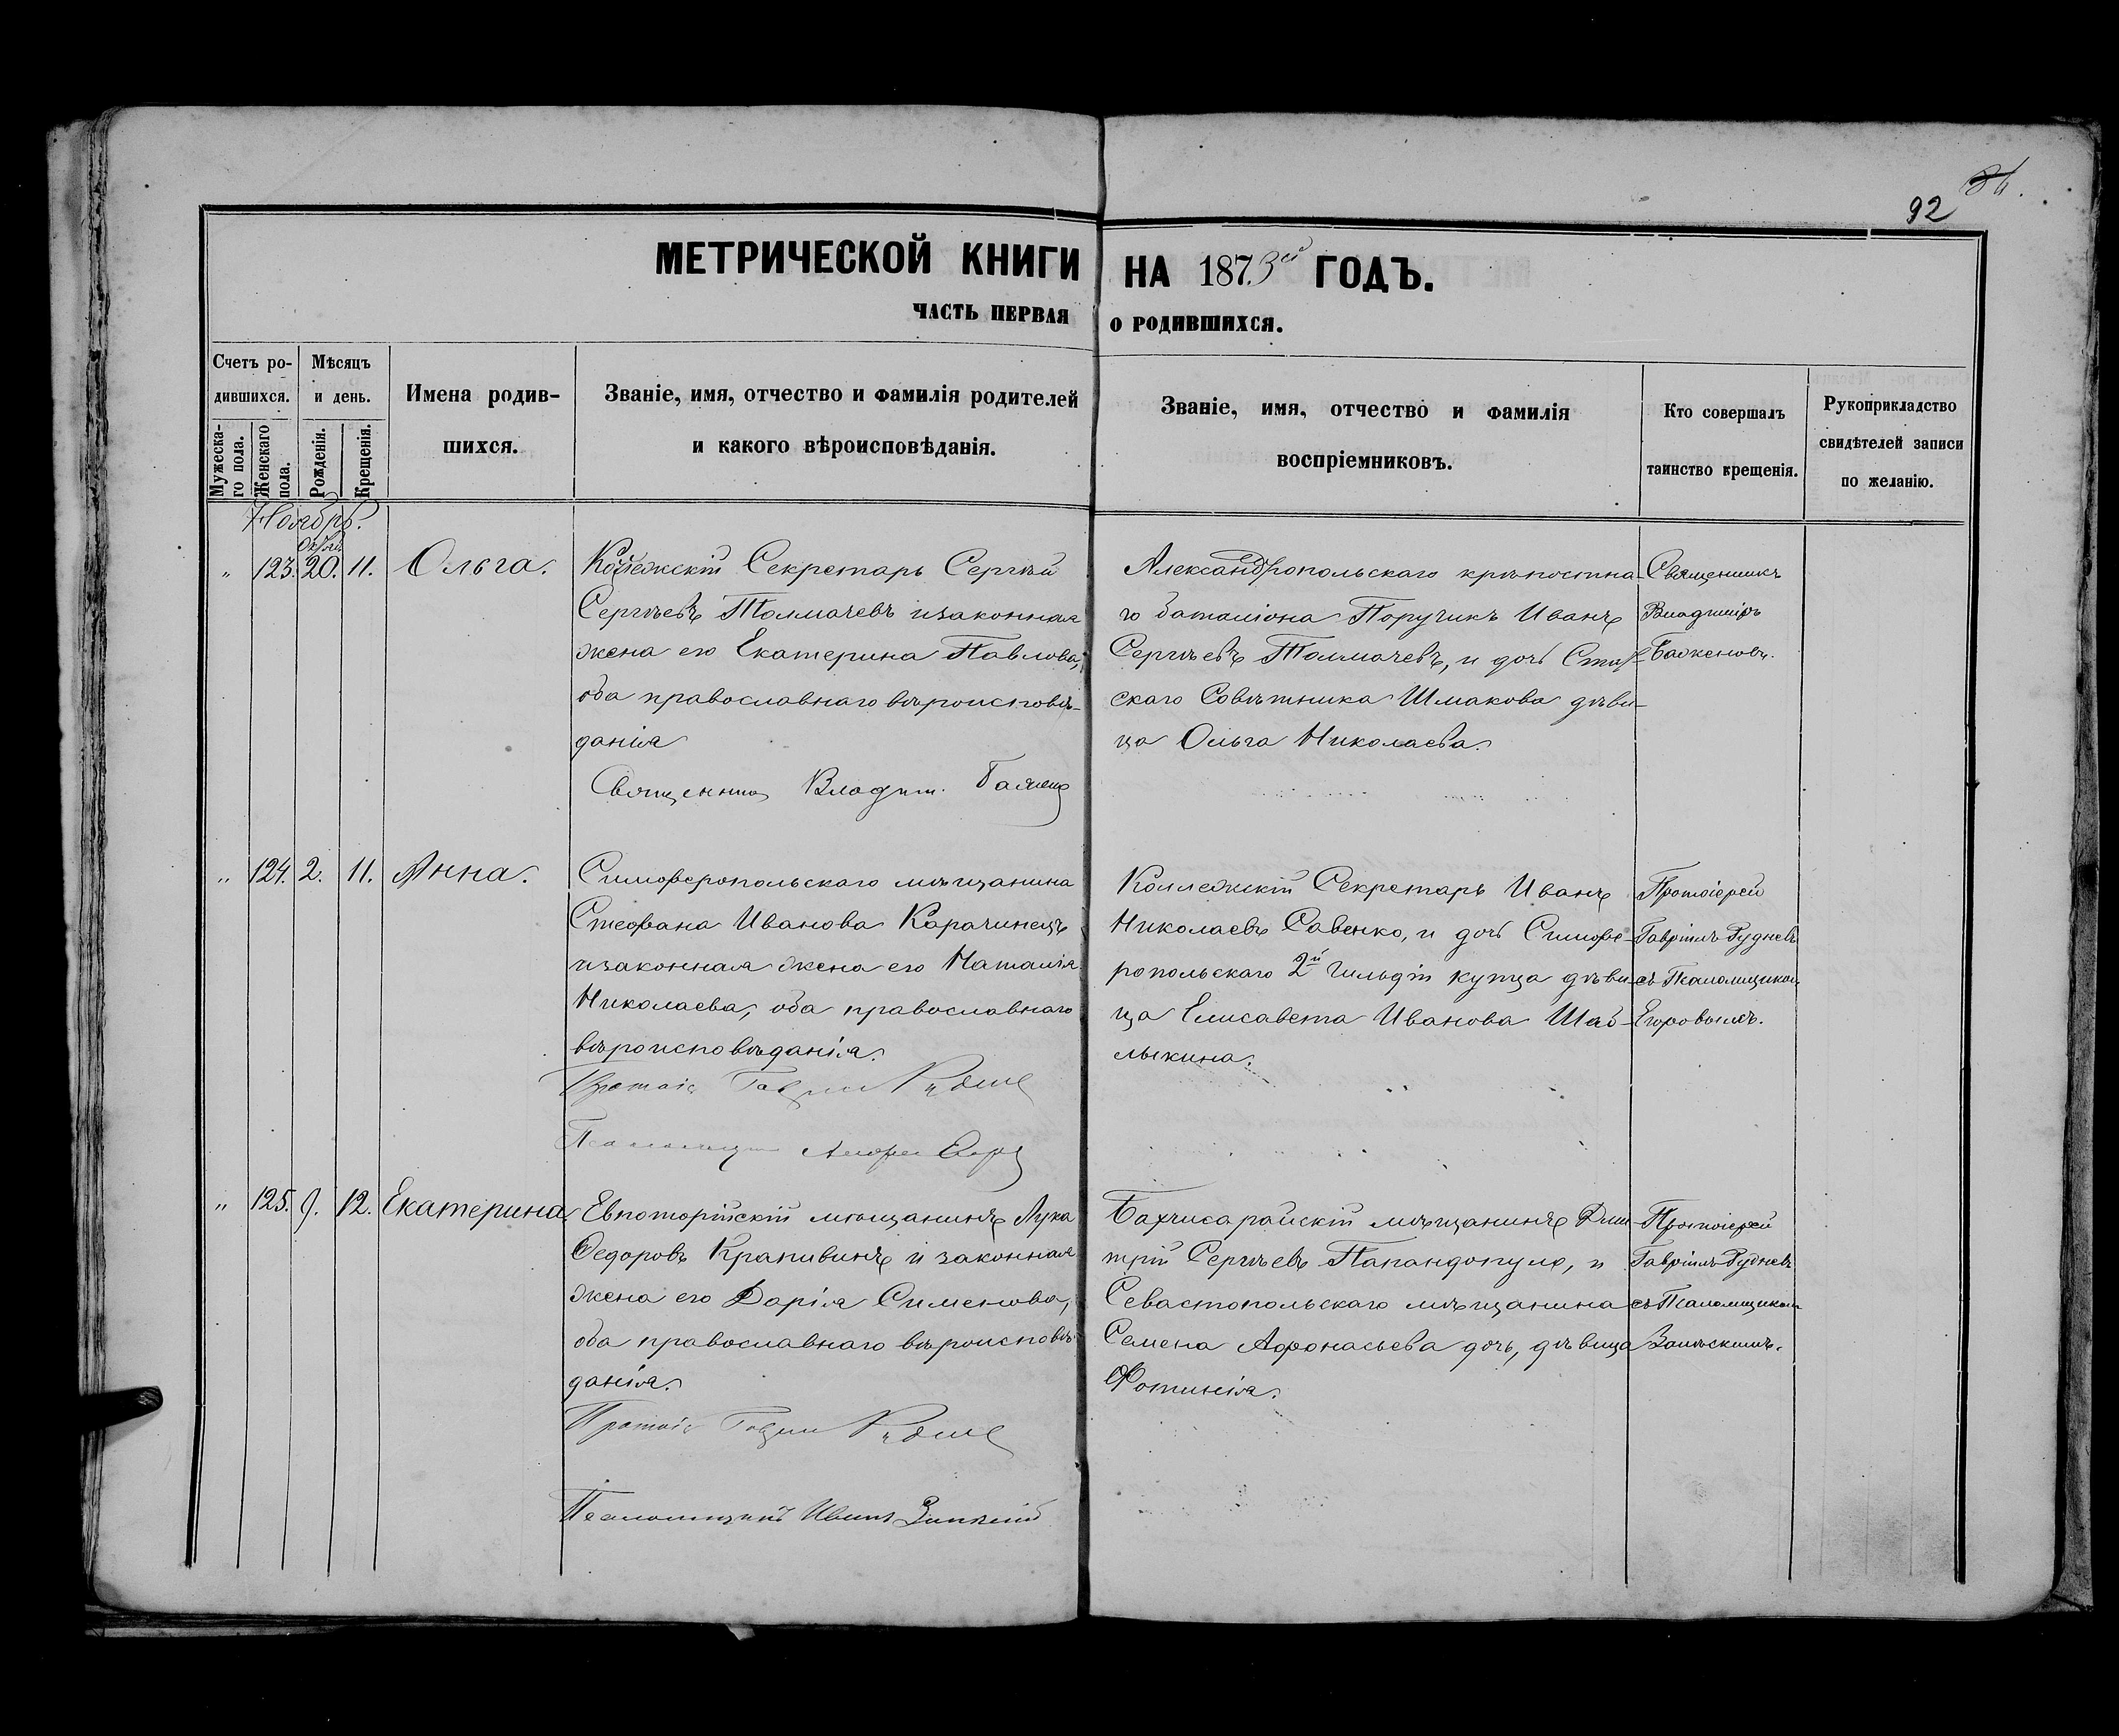 92
МЕТРИЧЕСКОЙ КНИГИ НА 1873й ГОДЪ.
ЧАСТЬ ПЕРВАЯ О РОДИВШИХСЯ.
Счетъ ро-
дившихся.
Мужеска-
го пола.
Женскаго
пола.
Мѣсяцъ
и день.
Рожденія.
Крещенія.
Имена родив-
шихся.
Званіе, имя, отчество и фамилія родителей
и какого вѣроисповѣданія.
Званіе, имя, отчество и фамилія
воспріемниковъ.
Кто совершалъ
таинство крещенія.
Рукоприкладство
свидѣтелей записи
по желанію.
Ноябрь.
" 123. 20. 11. Ольга.
Секретарь Сергѣй
Сергѣевъ Толмачевъ изаконная
жена его Екатерина Павлова,
оба православнаго вѣроисповѣ-
данія
Священник Владим.
Александропольскаго крѣпостна-
го баталіона Поручикъ Иванъ
Сергѣевъ Толмачевъ, и дочь Стат-
скаго Совѣтника Шмакова дѣви-
ца Ольга Николаева.
Священникъ
Владиміръ
Баженовъ.
" 124. 2. 11. Анна.
Симферопольскаго мѣщанина
Стефана Иванова Карачинецъ
изаконная жена его Наталія
Николаева, оба православнаго
вѣроисповѣданія.
Коллежскій Секретарь Иванъ
Николаевъ Савенко, и дочь Симфе-
ропольскаго 2й Гильдіи купца дѣви-
ца Елисавета Иванова Шаб-
лыкина.
Протоіерей
Гавріилъ Рудневъ
съ Псаломщиком
Егоровымъ.
" 125. 9. 12. Екатерина
Евпаторійскій мѣщанинъ Лука
Ѳедоровъ Крапивинъ и законная
жена его Дарія Сименова,
оба православнаго вѣроисповѣ-
данія.
Псаломщикъ Иванъ
Бахчисарайскій мѣщанинъ Дми-
трій Сергѣевъ Папандопуло, и
Севастопольскаго мѣщанина
Семена Афонасьева дочь, дѣвица
Фотинія.
Протоіерей
Гавріилъ Рудневъ
съ Псаломщиком